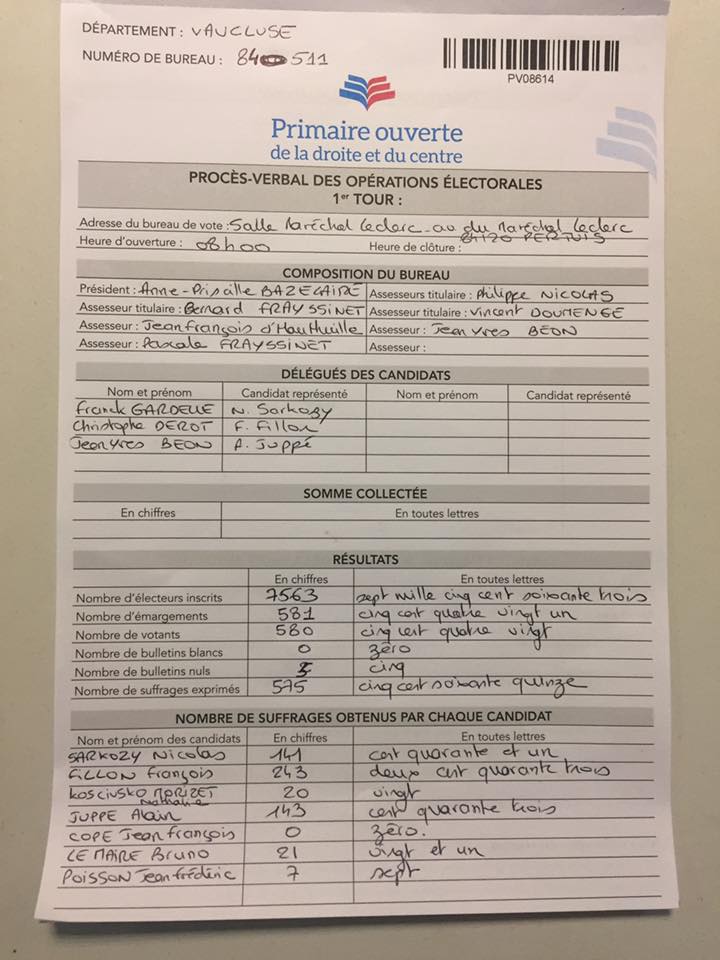 DÉPARTEMENT : VAUCLUSE
NUMÉRO DE BUREAU : 84 511
PV08614
Primaire ouverte
de la droite et du centre
PROCÈS-VERBAL DES OPÉRATIONS ÉLECTORALES
1er TOUR :
Adresse du bureau de vote : Salle Maréchal Leclerc - av du Maréchal Leclerc
84120 PERTUIS
Heure d'ouverture : 08h00 Heure de clôture :
COMPOSITION DU BUREAU
Président : Anne-Priscille BAZELAIRE Assesseurs titulaire : Philippe NICOLAS
Assesseur titulaire : Bernard FRAYSSINET Assesseur titulaire : Vincent DOUMENGE
Assesseur : Jean françois d'Hauthuille Assesseur : Jean Yves BEON
Assesseur : Pascale FRAYSSINET Assesseur :
DÉLÉGUÉS DES CANDIDATS
Nom et prénom Candidat représenté Nom et prénom Candidat représenté
Franck GARDELLE N. Sarkozy
Christophe DEROT F. Fillon
Jean Yves BEON A. Juppé
SOMME COLLECTÉE
En chiffres En toutes lettres
RÉSULTATS
En chiffres En toutes lettres
Nombre d'électeurs inscrits 7563 sept mille cinq cent soixante trois
Nombre d'émargements 581 cinq cent quatre vingt un
Nombre de votants 580 cinq cent quatre vingt
Nombre de bulletins blancs 0 zéro
Nombre de bulletins nuls 5 cinq
Nombre de suffrages exprimés 575 cinq cent soixante quinze
NOMBRE DE SUFFRAGES OBTENUS PAR CHAQUE CANDIDAT
Nom et prénom des candidats En chiffres En toutes lettres
SARKOZY Nicolas 141 cent quarante et un
FILLON François 243 deux cent quarante trois
KOSCIUSKO MORIZET 20 vingt
Nathalie
JUPPE Alain 143 cent quarante trois
COPE Jean françois 0 zéro.
LE MAIRE Bruno 21 vingt et un
POISSON Jean frédéric 7 sept